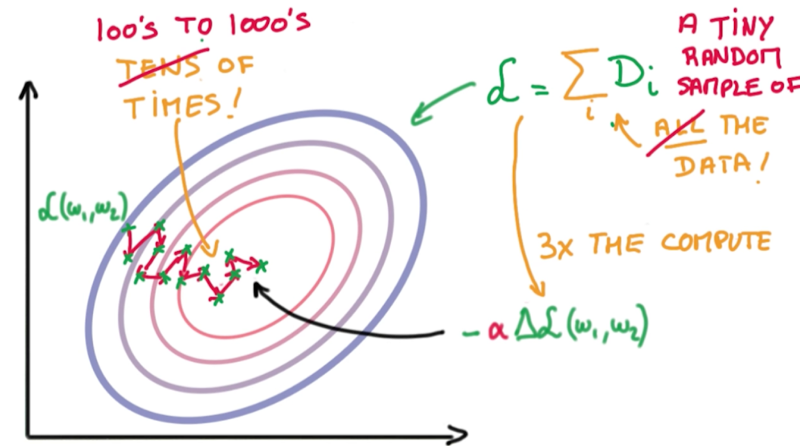 100's TO 1000's
TENS OF
TIMES!
ℒ = Σ Di
i
A TINY
RANDOM
SAMPLE OF
ALL THE
DATA!
ℒ(w₁,w₂)
3x THE COMPUTE
- α Δℒ(w₁,w₂)